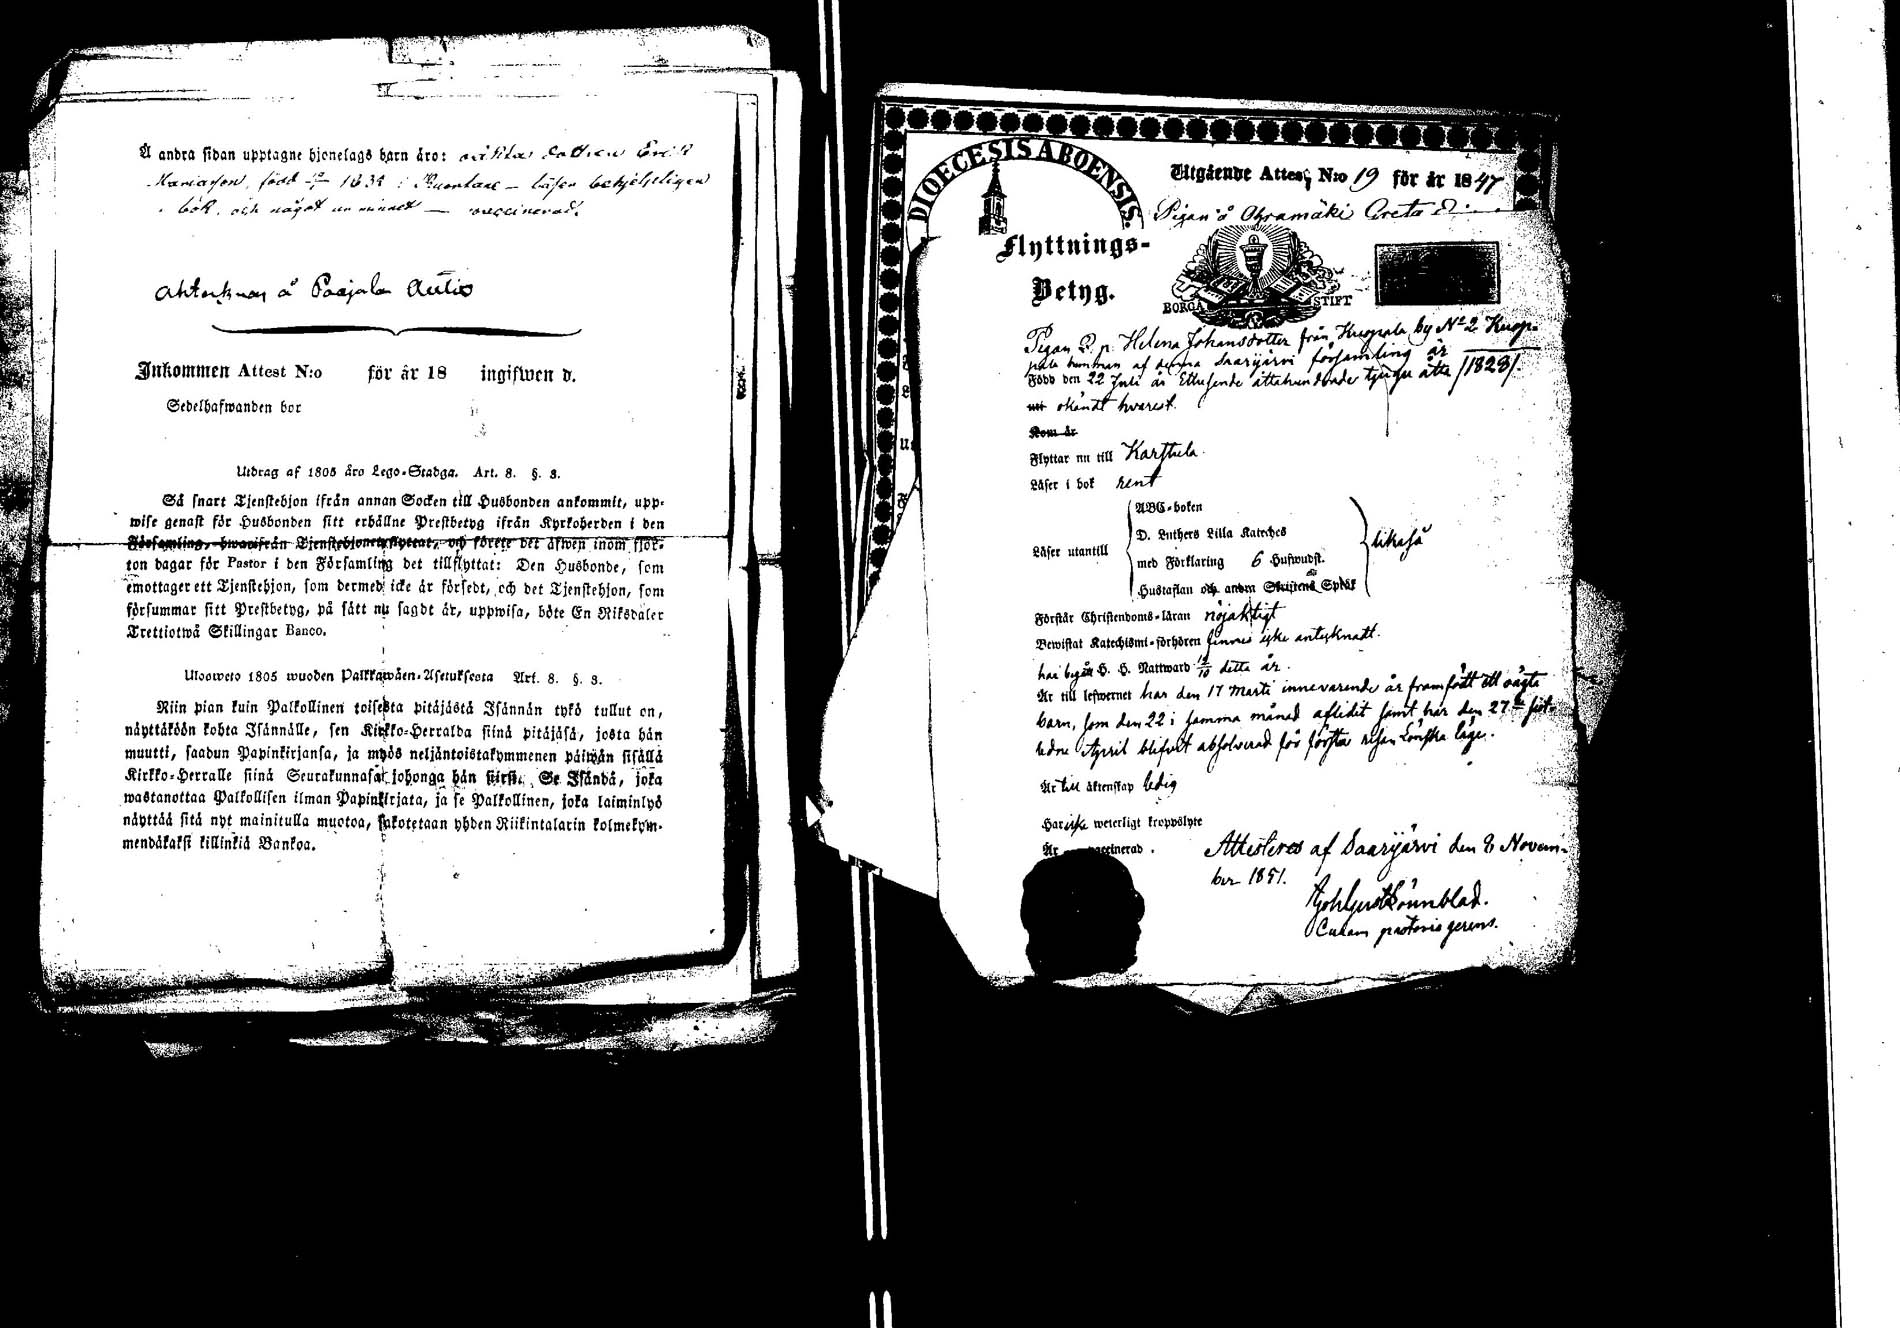 Å andra sidan upptagne hjonelags barn äro: Erik
född 183 läser
bok, och något ur minnet — vaccinerad.
å Paajala Autio
Inkommen Attest N:o för år 18 ingifwen d.
Sedelhafwanden bor
Utdrag af 1805 års Lego-Stadga. Art. 8. §. 3.
Så snart Tjenstehjon ifrån annan Socken till Husbonden ankommit, upp-
wise genast för Husbonden sitt erhållne Prestbetyg ifrån Kyrkoherden i den
Församling, hwarifrån Tjenstehjonet flyttat, och förete det äfwen inom fjor-
ton dagar för Pastor i den Församling det tillflyttat: Den Husbonde, som
emottager ett Tjenstehjon, som dermed icke är försedt, och det Tjenstehjon, som
försummar sitt Prestbetyg, på sätt nu sagdt är, uppwisa, böte En Riksdaler
Trettiotwå Skillingar Banco.
Ulosweto 1805 wuoden Palkkawäen-Asetuksesta Art. 8. §. 3.
Niin pian kuin Palkollinen toisesta pitäjästä Isännän tykö tullut on,
näyttäköön kohta Isännälle, sen Kirkko-Herralda siinä pitäjäsä, josta hän
muutti, saadun Papinkirjansa, ja myös neljäntoistakymmenen päiwän sisällä
Kirkko-Herralle siinä Seurakunnasa johonga hän siirsi. Se Isändä, joka
wastanottaa Palkollisen ilman Papinkirjata, ja se Palkollinen, joka laiminlyö
näyttää sitä nyt mainitulla muotoa, sakotetaan yhden Riikintalarin kolmekym-
mendäkaksi killinkiä Bankoa.
DIOECESIS ABOENSIS.
Utgående Attest N:o 19 för år 1847
Pigan å Ohramäki Greta
Flyttnings-
Betyg.
BORGÅ STIFT
Pigan Helena Johansdotter från Kuoppala by No 2 Kuop-
pala hemman af denna Saarijärvi församling är
Född den 22 Juli år Ettusende åttahundrade tjugu åtta /1828/.
okändt hvarest.
Kom år
Flyttar nu till Karstula.
Läser i bok rent
ABC-boken
D. Luthers Lilla Kateches
Läser utantill
med Förklaring 6 Hufwudst.
likaså
Hustaflan och andra Skriftens Språk
Förstår Christendoms-läran nöjaktigt
Bewistat Katechismi-förhören finnes icke antecknadt.
har begått H. H. Nattward 19/10 detta år.
Är till lefwernet har den 17 Marti innevarande år framfödt ett oägta
barn, som den 22 i samma månad aflidit samt har den 27de sist-
ledne April blifvit absolverad för första resan Lönska läge.
Är till äktenskap ledig
Har icke weterligt kroppslyte
Är vaccinerad.
Attesteras af Saarijärvi den 8 Novem-
ber 1851.
Lönnblad.
Curam pastoris gerens.